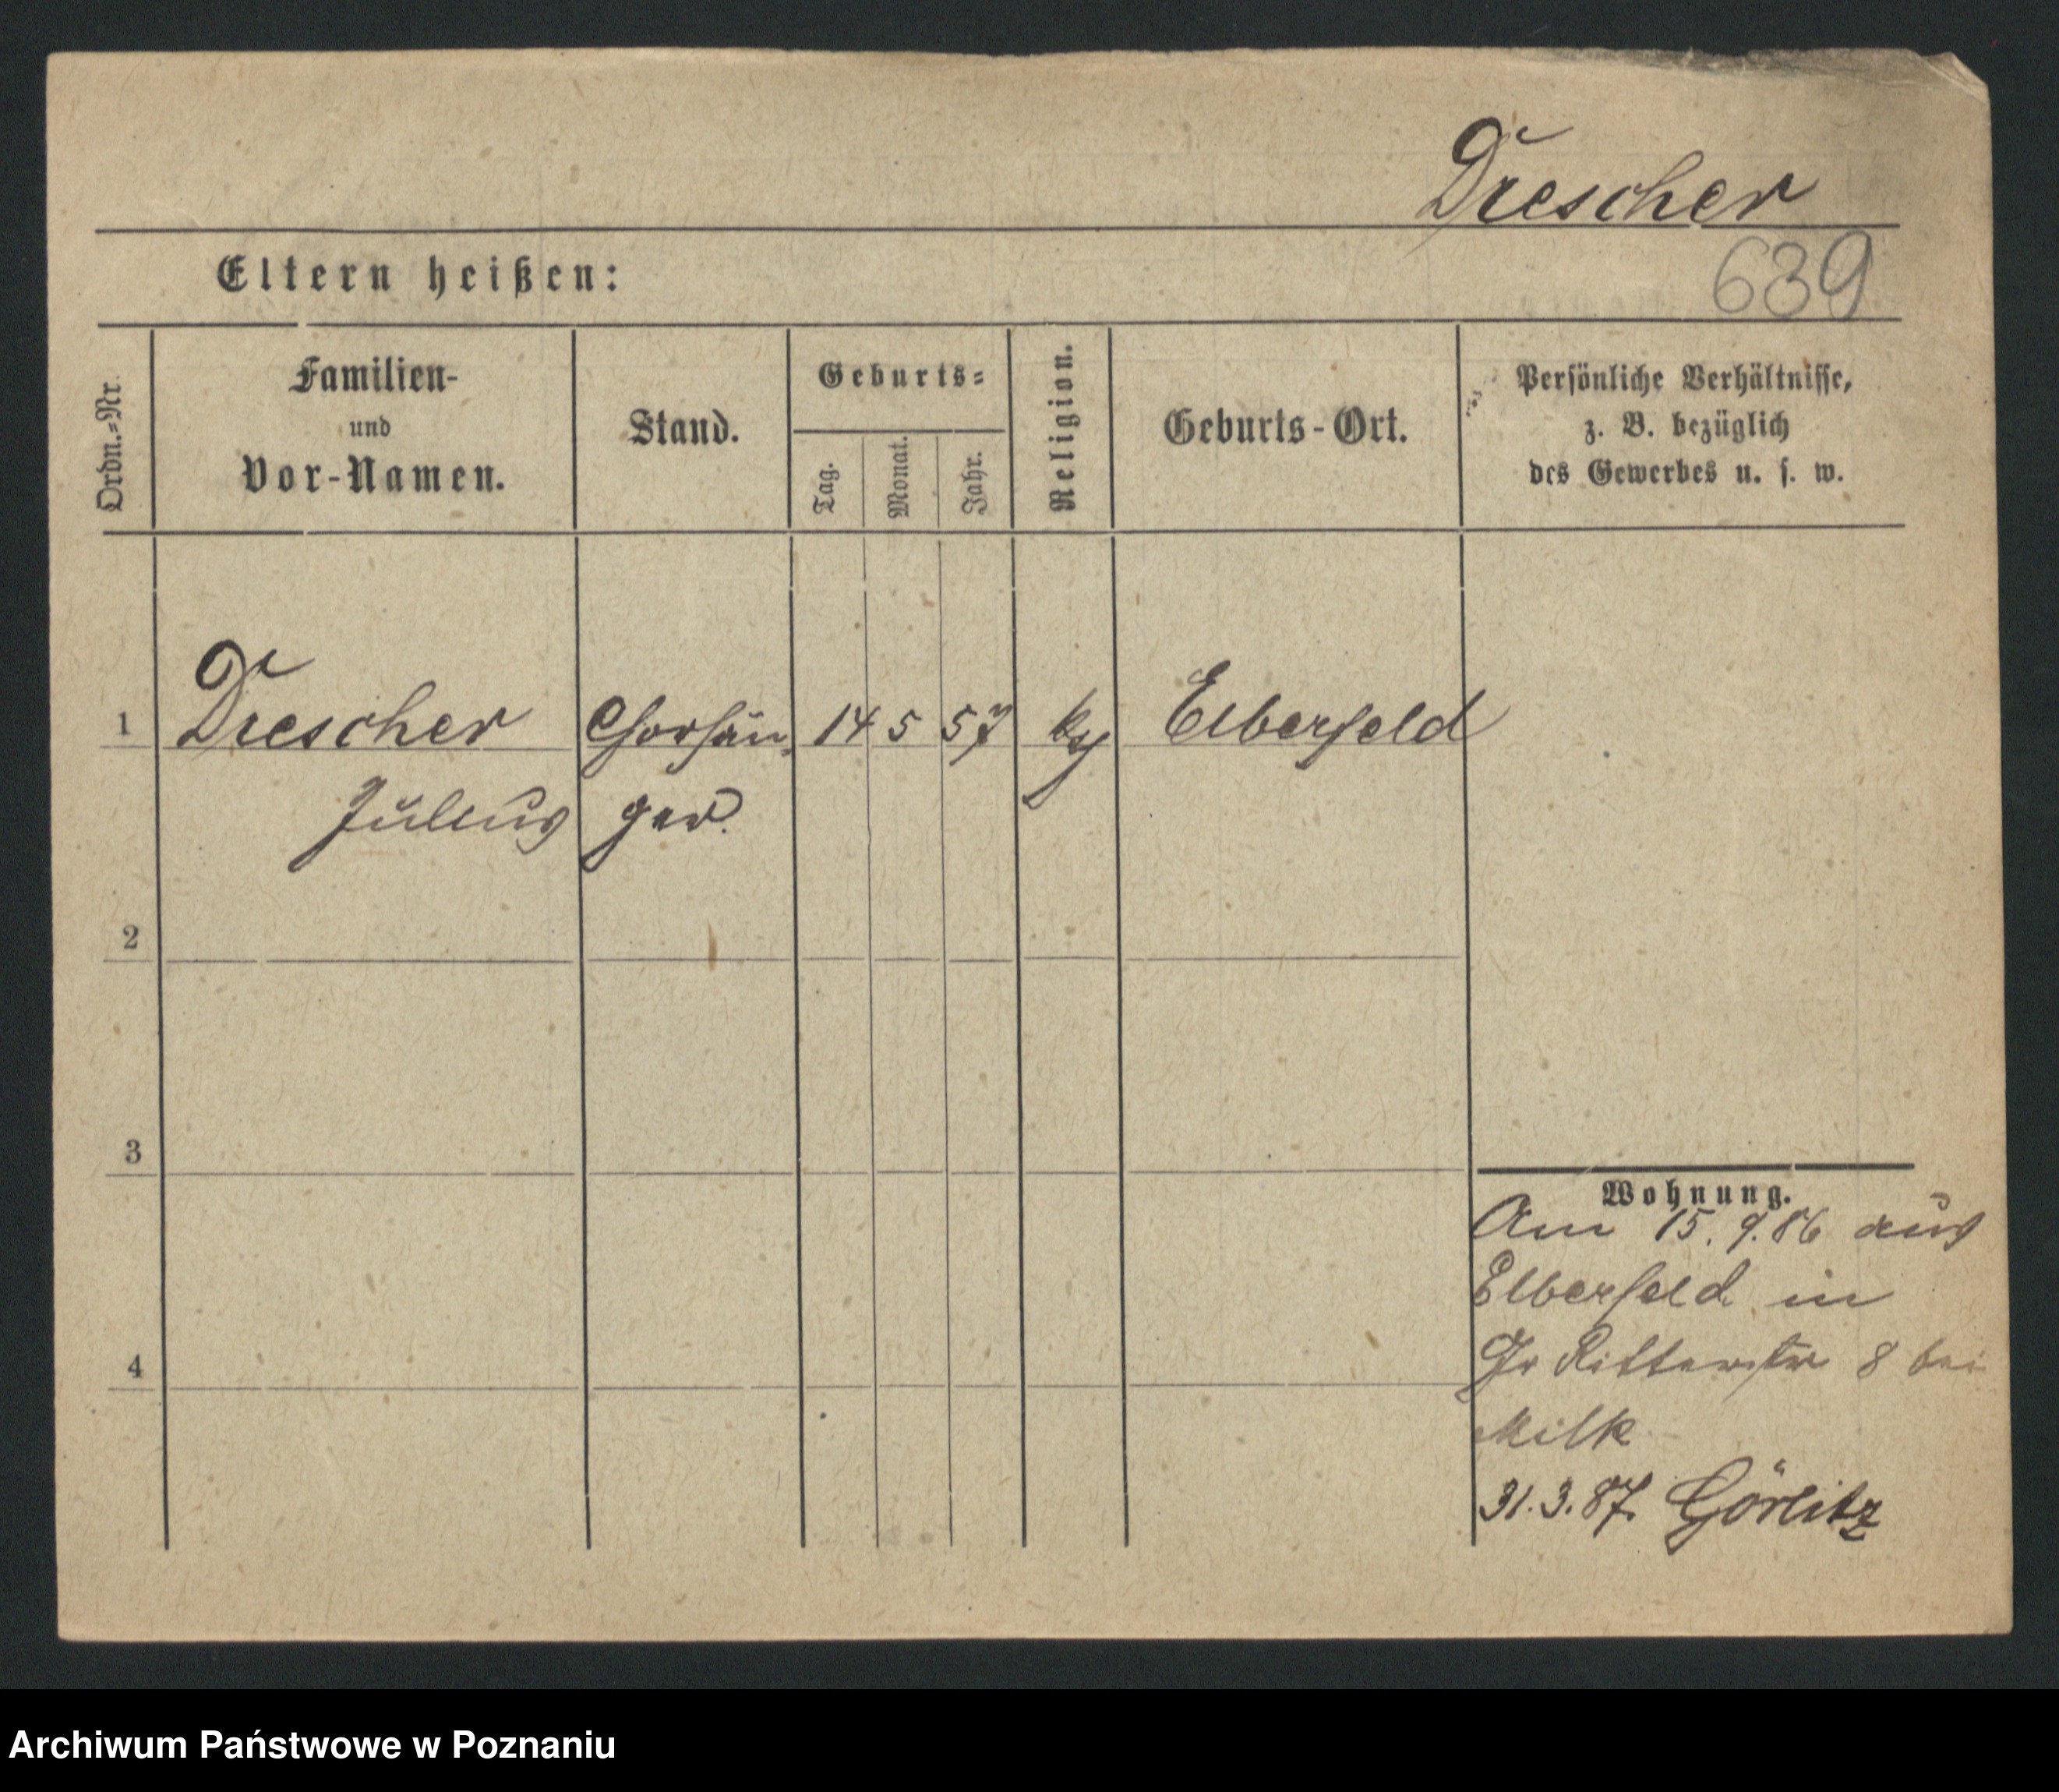 Drescher
639
Eltern heißen:
Ordn.=Nr.
Familien-
und
Vor-Namen.
Stand.
Geburts=
Tag.
Monat.
Jahr.
Religion.
Geburts-Ort.
Persönliche Verhältnisse,
z. B. bezüglich
des Gewerbes u. s. w.
1 Drescher Chorsän- 14 5 57 Elberfeld
Julius ger.
2
3
4
Wohnung.
Am 15. 9. 86 aus
Elberfeld in
Gr Ritterstr 8 bei
Milk
31. 3. 87. Görlitz
Archiwum Państwowe w Poznaniu